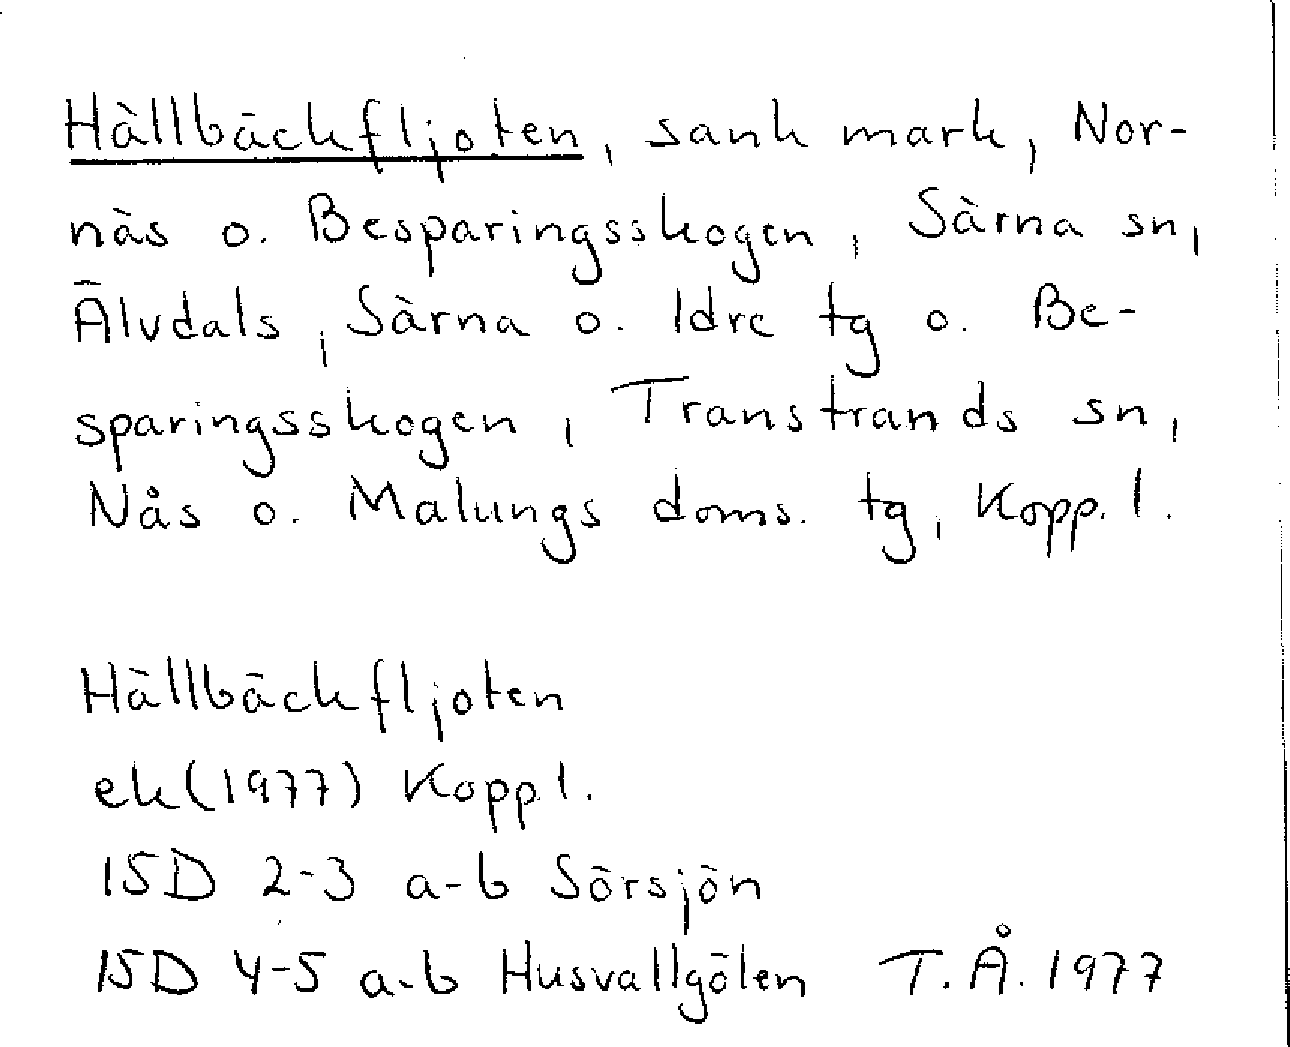 Hällbäckfljoten, sank mark, Nor-
näs o. Besparingsskogen, Särna sn,
Älvdals, Särna o. Idre tg o. Be-
sparingsskogen, Transtrands sn,
Nås o. Malungs doms. tg, Kopp. l.
Hällbäckfljoten
ek(1977) Kopp l.
15D 2-3 a-b Sörsjön
15D 4-5 a-b Husvallgölen T.Å. 1977